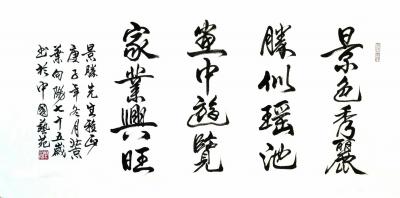 景色秀麗
勝似瑶池
畫中遊覽
家業興旺
景勝先生雅正
庚子年冬月北京
葉向陽七十五歲
書於中國藝苑